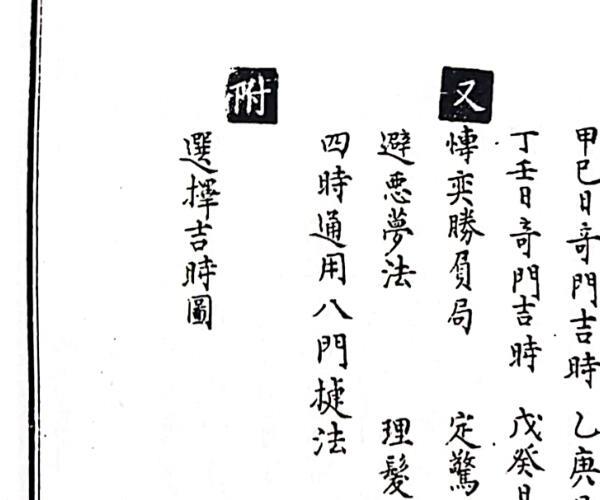 甲己日奇門吉時 乙庚日
丁壬日奇門吉時 戊癸日
又
愽奕勝負局 定驚
避悪夢法 理髮
四時通用八門㨗法
附
選擇吉時圖